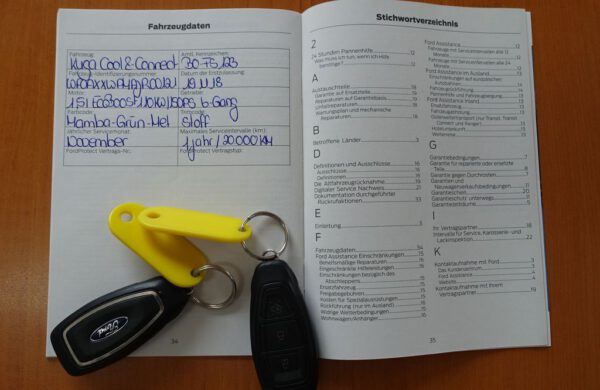 Fahrzeugdaten
Fahrzeug:
Amtl. Kennzeichen:
Kuga Cool & Connect
Fahrzeug-Identifizierungsnummer:
Datum der Erstzulassung:
19.11.18
Motor:
Getriebe:
6-Gang
Farbcode:
Mamba-Grün Met
Stoff
Jährlicher Servicemonat:
Maximales Serviceintervalle (km):
November
1 Jahr / 20000 KM
FordProtect Vertrags-Nr.:
FordProtect Vertragstyp:
34
Ford
Stichwortverzeichnis
2
24 Stunden Pannenhilfe 12
Was muss ich tun, wenn ich Hilfe
benötige? 12
A
Austauschteile 18
Garantie auf Ersatzteile 19
Reparaturen auf Garantiebasis 19
Unfallreparaturen 18
Wartungsplan und mechanische
Reparaturen 18
B
Betroffene Länder 3
D
Definitionen und Ausschlüsse 16
Ausschlüsse 16
Definitionen 16
Die Altfahrzeugrücknahme 19
Digitaler Service Nachweis 21
Dokumentation durchgeführter
Rückrufaktionen 33
E
Einleitung 3
F
Fahrzeugdaten 34
Ford Assistance Einschränkungen 15
Bereitsmäßige Reparaturen 16
Eingeschränkte Hilfeleistungen 16
Einschränkungen bezüglich des
Abschleppens
Ersatzfahrzeug
Freigabegebühren
Kosten für Spezialausrüstungen
Rückführung (nur im Ausland)
Widrige Wetterbedingungen 15
Wohnwagen/Anhänger 16
Ford Assistance 12
Fahrzeuge mit Serviceintervallen alle 12
Monate
Fahrzeuge mit Serviceintervallen alle 24
Monate
Ford Assistance im Ausland 13
Einschränkungen auf europäischen
Autobahnen
Fahrzeugrückführung 14
Pannenhilfe und Fahrzeugbergung 13
Ford Assistance Inland 13
Ersatzfahrzeug
Fahrzeugbergung
Gütertransport (nur Transit, Transit
Connect und Ranger)
Hotelunterkunft
Weiterreise
G
Garantiebedingungen 7
Garantie für reparierte oder ersetzte
Teile 8
Garantie gegen Durchrosten 7
Garantien und
Neuwagenverkaufbedingungen 11
Garantieschein 20
Garantieschutz unterwegs 11
Garantiezeiträume 5
I
Ihr Vertragspartner 18
Intervalle für Service, Karosserie- und
Lackinspektion 22
K
Kontaktaufnahme mit Ford 3
Das Kundenzentrum 4
Ford Assistance 4
Website 4
Kontaktaufnahme mit Ihrem
Vertragspartner 19
35